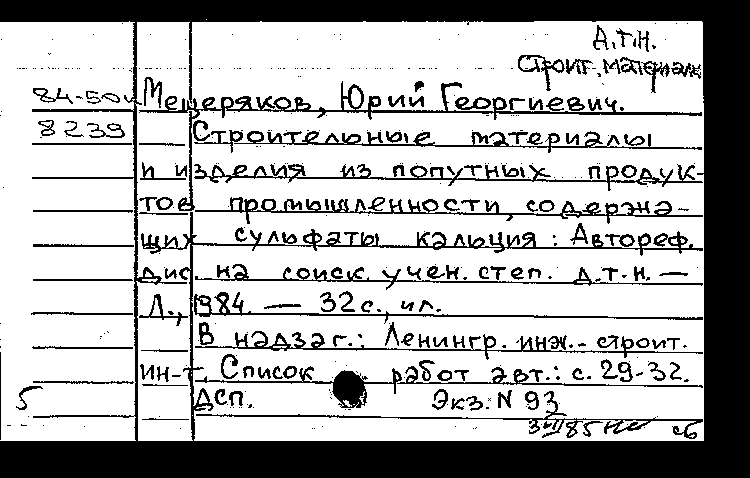 Д.Т.Н.
Строит. материалы
84-50
Мещеряков, Юрий Георгиевич.
8239
Строительные материалы
и изделия из попутных продук-
тов промышленности, содержа-
щих сульфаты кальция: Автореф.
дис. на соиск. учен. степ. д.т.н. —
Л., 1984. — 32 с., ил.
В надзаг.: Ленингр. инж.-строит.
ин-т. Список работ авт.: с. 29-32.
5
ДСП. Экз. N 93
сб